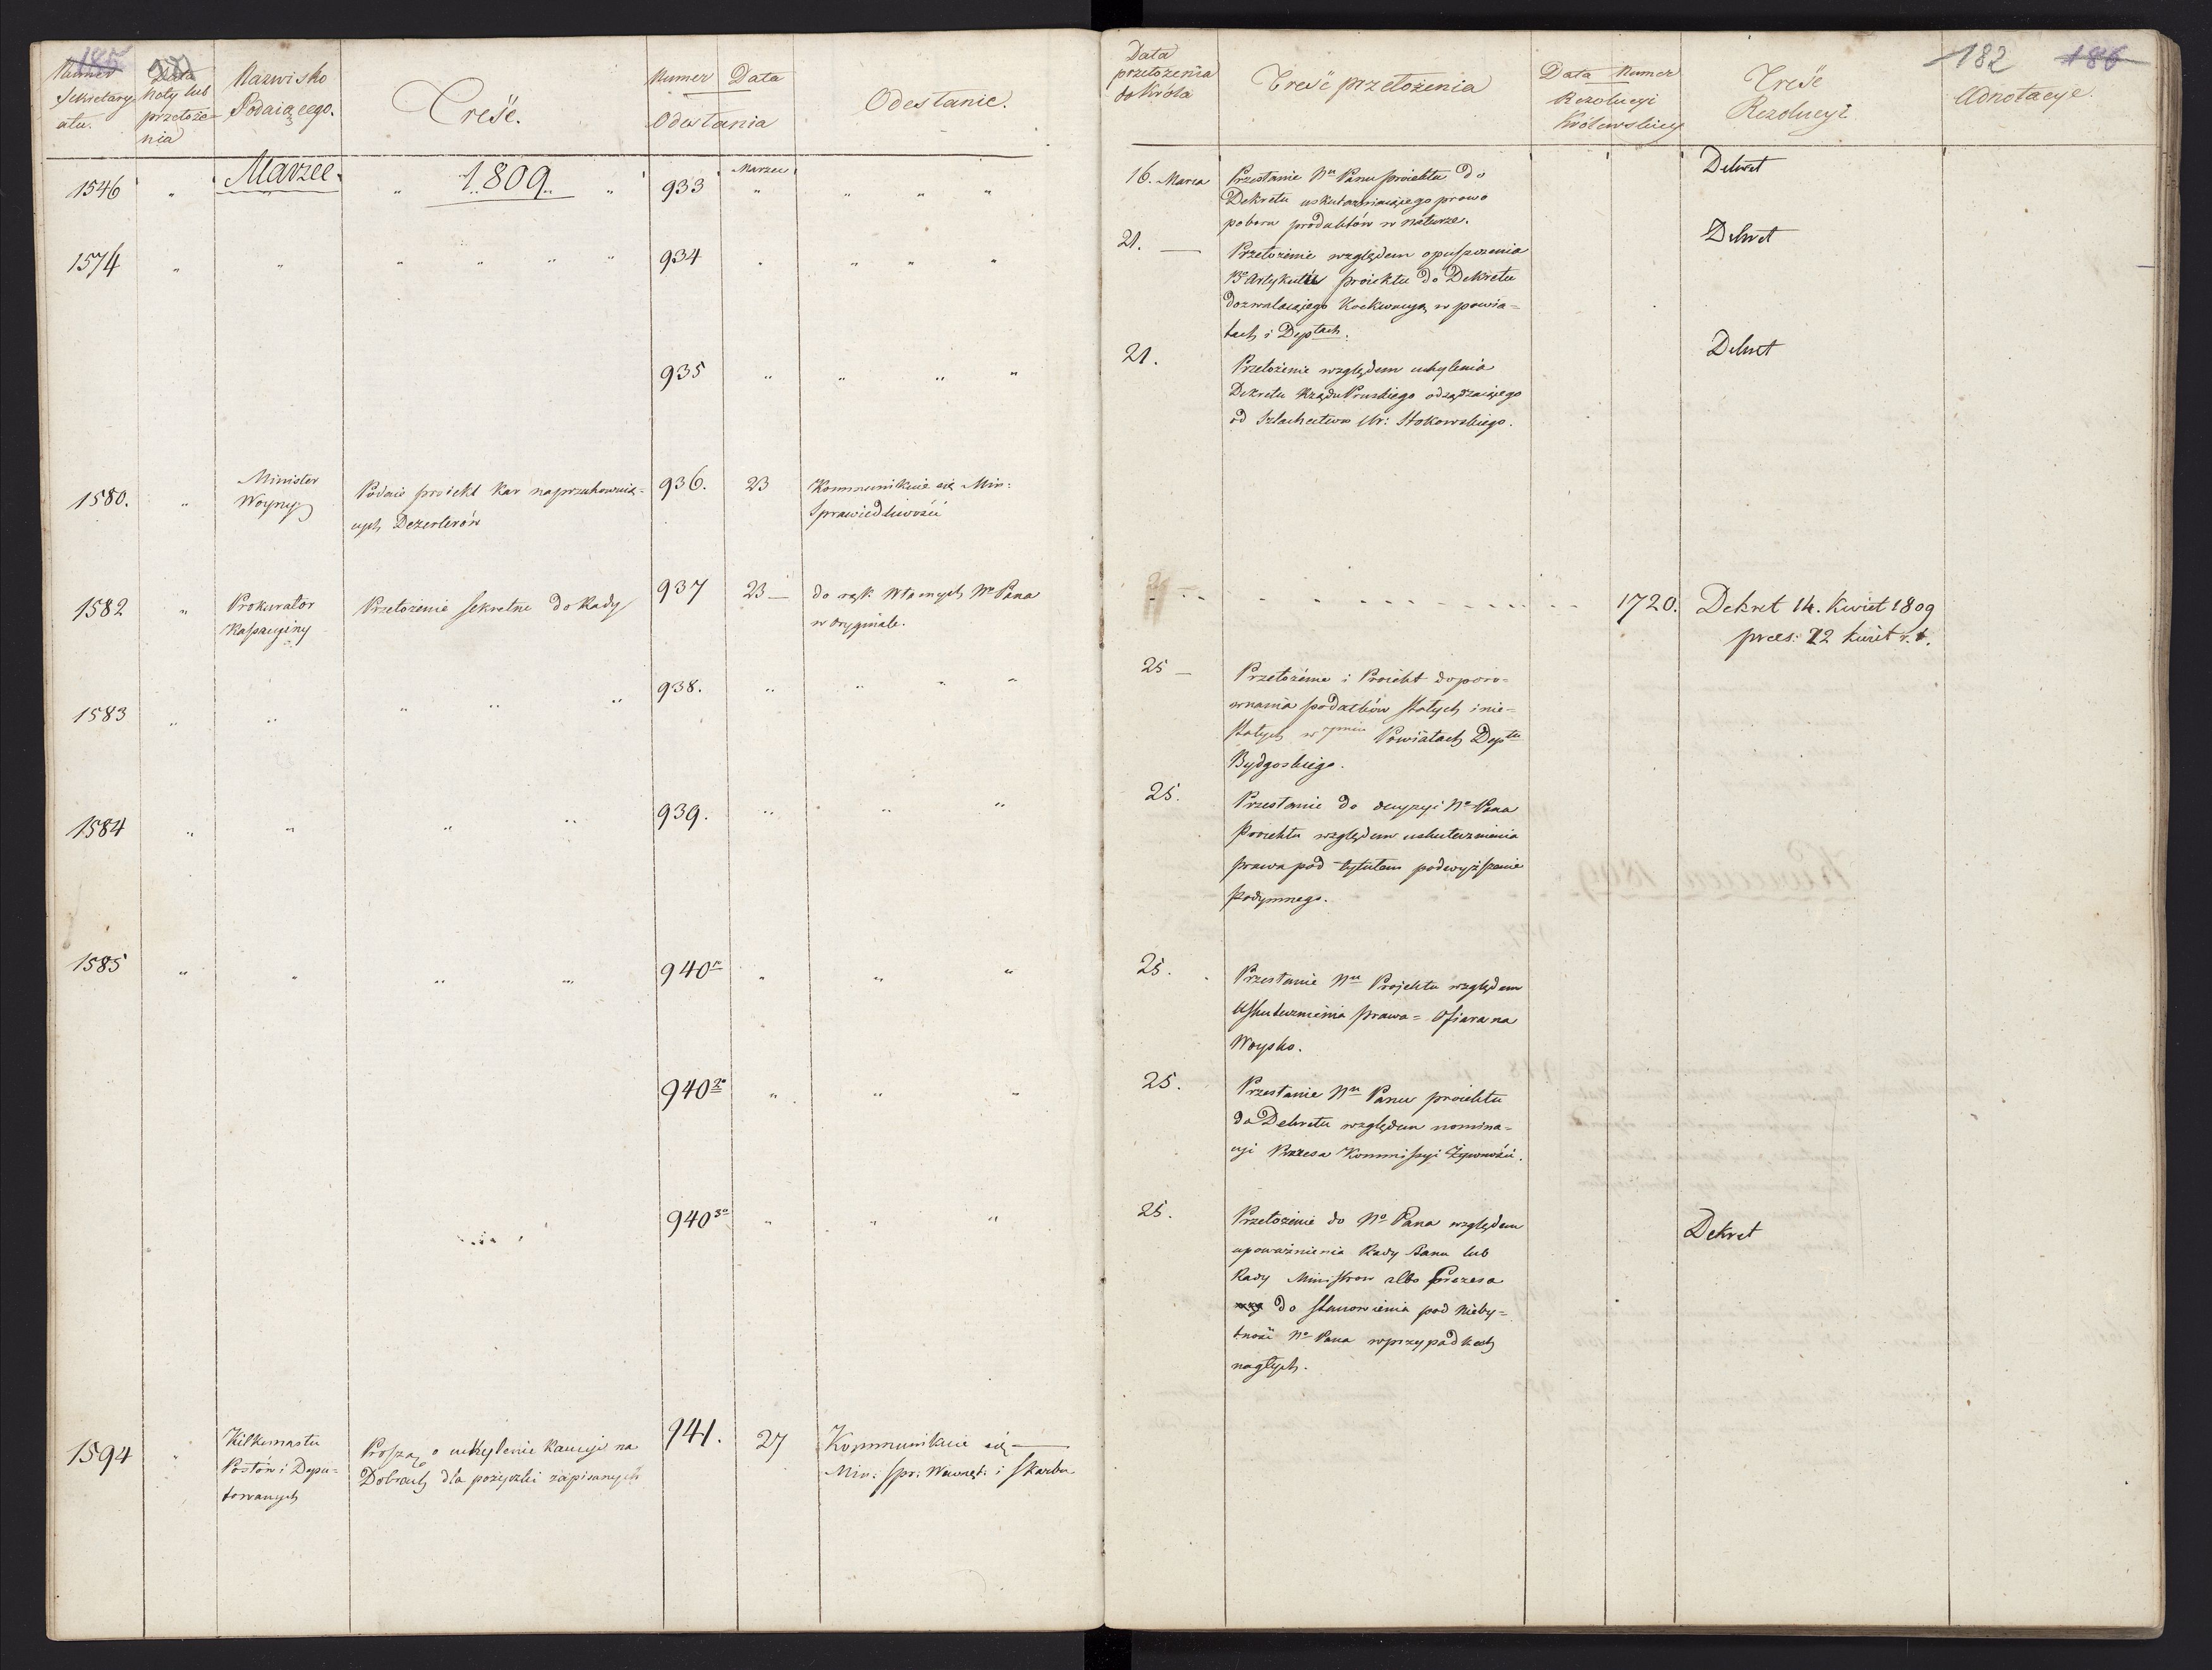 185
Numer
Sekretary-
atu.
Data
Noty lub
przełoże-
nia
Nazwisko
Podaiącego.
Treść.
Numer Data
Odesłania
Odesłanie.
Marzec. 1809.
1546 " " " 933 Marzec " " " "
1574 " " " " " " 934 " " " "
935 " " " "
1580. "
Minister
Woyny
Podaie proiekt kar na przechowuią-
cych Dezerterów
936. 23
Kommunikuie się Min:
Sprawiedliwości
1582 "
Prokurator
Kassacyiny
Przełożenie sekretne do Rady
937 23 —
do rąk własnych Nº Pana
w oryginale.
1583 " " " " " 938. " " " "
1584 " " " " 939. " " "
1585 " " " " 940 " " "
940 2º " " "
940 3º " " "
1594 "
Kilkunastu
Posłów i Depu=
towanych
Proszą o uchylenie Kaucyi na
Dobrach dla pożyczki zapisanych
941. 27
Kommunikuie się —
Min: Spr: Wewnęt: i Skarbu
182 186
Data
przełożenia
do Króla
Treść przełożenia
Data Numer
Rezolucyi
Królewskiey
Treść
Rezolucyi
Adnotacye.
16. Marca
Przesłanie Nu Panu proiektu do
Dekretu uskuteczniaiącego prawo
poboru produktów w naturze.
Dekret
21. —
Przełożenie względem opuszczenia
13º Artykułu proiektu do Dekretu
dozwalaiącego Exekucyą w powia=
tach i Deptach.
Dekret
21.
Przełożenie względem uchylenia
Dekretu Rządu Pruskiego odsądzaiącego
od Szlachectwa Ur: Stokowskiego.
Dekret
1720. Dekret 14. Kwiet 1809
praes: 22 Kwiet r. t.
25 —
Przełożenie i Proiekt do poro=
wnania podatków stałych i nie=
stałych w Powiatach Deptu
Bydgoskiego.
25.
Przesłanie do decyzyi Nº Pana
Proiektu względem uskutecznienia
prawa pod tytułem podwyższenie
Podymnego.
25.
Przesłanie Nu Projektu względem
Uskutecznienia prawa = Ofiara na
Woysko.
25.
Przesłanie Nu Panu proiektu
do Dekretu względem nomina=
cyi Prezesa Kommissyi Żywności.
25.
Przełożenie do Nº Pana względem
upoważnienia Rady Stanu lub
Rady Ministrow albo Prezesa
do stanowienia pod nieby=
tność Nº Pana w przypadkach
nagłych.
Dekret